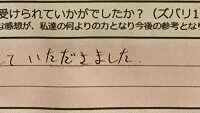 受けられていかがでしたか？（ズバリ1
な感想が、私達の何よりの力となり今後の参考とな
ていただきました。